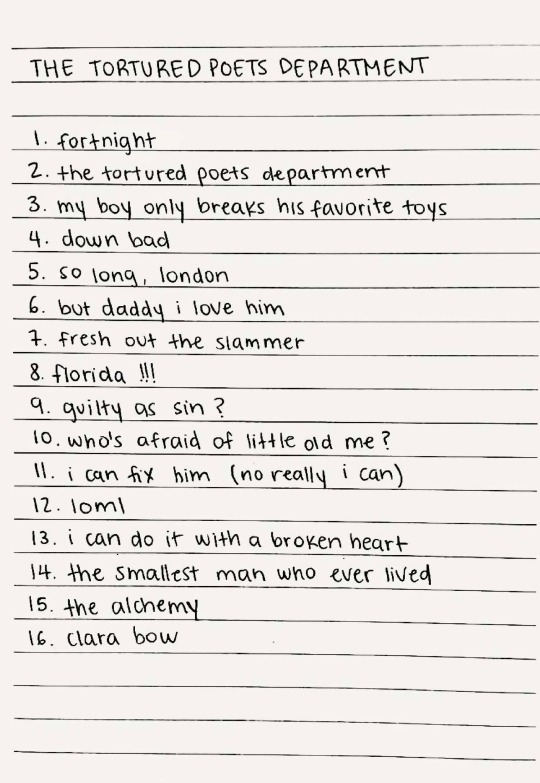 THE TORTURED POETS DEPARTMENT
1. fortnight
2. the tortured poets department
3. my boy only breaks his favorite toys
4. down bad
5. so long, london
6. but daddy i love him
7. fresh out the slammer
8. florida !!!
9. guilty as sin ?
10. who's afraid of little old me ?
11. i can fix him (no really i can)
12. loml
13. i can do it with a broken heart
14. the smallest man who ever lived
15. the alchemy
16. clara bow